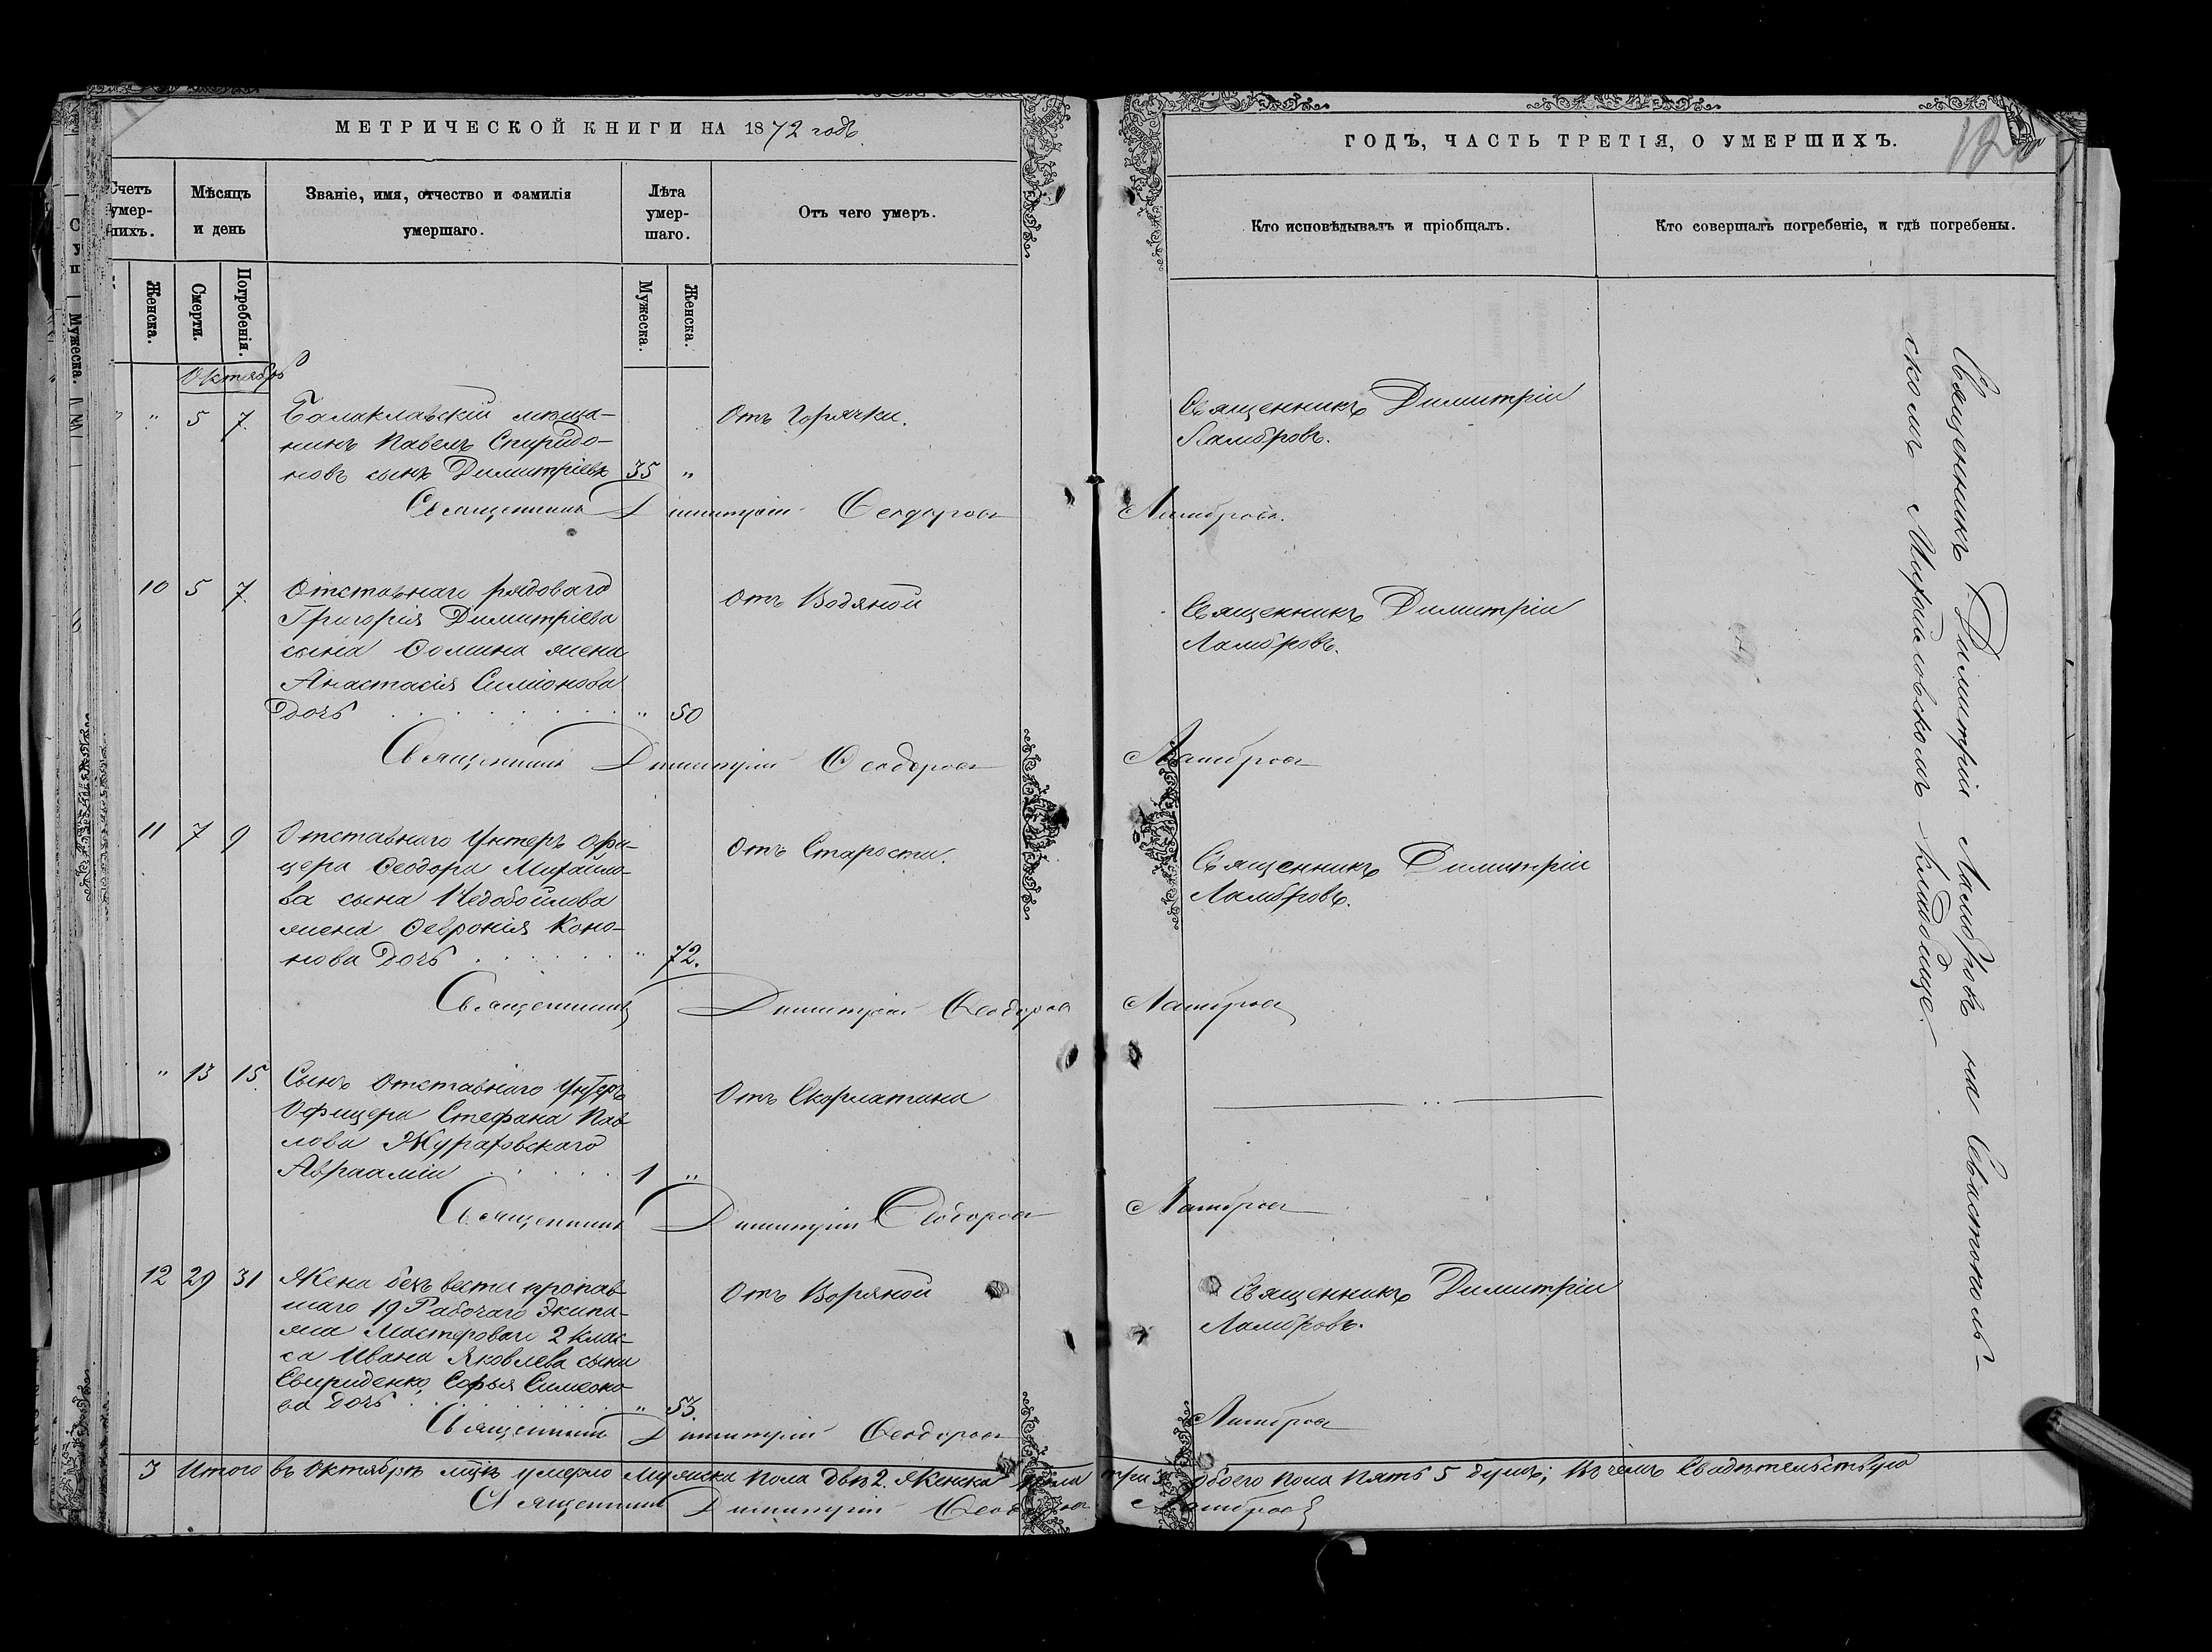 МЕТРИЧЕСКОЙ КНИГИ НА 1872 годъ.
Счетъ умер-шихъ.
Мѣсяцъ и день
Званіе, имя, отчество и фамилія умершаго.
Лѣта умер-шаго.
Отъ чего умеръ.
Женска.
Смерти.
Погребенія.
Мужеска.
Женска.
Октябрь
" 5 7. Балаклавскій мѣща-
нинъ Павелъ Спиридо-
новъ сынъ Димитріевъ 35 "
Отъ Горячки.
Священникъ Димитрій Феодоровъ
10 5 7. Отставнаго рядоваго
Григорія Димитріева
сына Фомина жена
Анастасія Симіонова
Дочь " 50
Отъ Водяной
Священникъ Димитрій Феодоровъ
11 7 9 Отставнаго Унтеръ Офи-
цера Феодора Михайло-
ва сына Недобойлова
жена Февронія Коно-
нова Дочь " 72.
Отъ Старости.
Священникъ Димитрій Феодоровъ
" 13 15. Сынъ Отставнаго Унтеръ
Офицера Стефана Пав-
лова Журавовскаго
Авраамій 1 "
Отъ Скорлатина
Священникъ Димитрій Феодоровъ
12 29 31 Жена безъ вести пропав-
шаго 19 Рабочаго Экипа-
жа Мастероваго 2 клас-
са Ивана Яковлева сына
Свириденко, Софья Симеоно-
ва Дочь " 53.
Отъ Водяной
Священникъ Димитрій Феодоровъ
3 Итого въ Октябрѣ мцѣ умерло Мужска пола двѣ 2. Женска пола
Священникъ Димитрій Феодоровъ
ГОДЪ, ЧАСТЬ ТРЕТІЯ, О УМЕРШИХЪ.
Кто исповѣдывалъ и пріобщалъ.
Кто совершалъ погребеніе, и гдѣ погребены.
Священникъ Димитрій
Ламбровъ.
Ламбровъ.
Священникъ Димитрій
Ламбровъ.
Ламбровъ
Священникъ Димитрій
Ламбровъ.
Ламбровъ
Ламбровъ
Священникъ Димитрій
Ламбровъ.
Ламбровъ
три 3. Обоего пола пять 5 душъ; Въ чемъ Свидѣтельствую
Ламбровъ
Священникъ Димитрій Ламбровъ на Севастополь-
скомъ Михайловскомъ кладбище.
Мужеска.